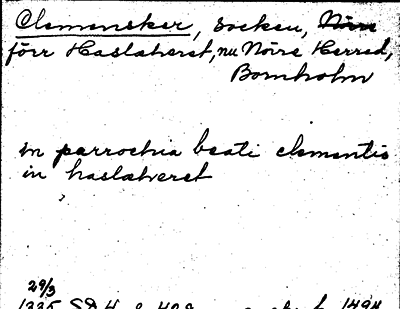 Clemensker, socken, Nörre
förr Haslæheret, nu Nörre Herred,
Bornholm
in parrochia beati clementis
in haslæheret
29/3
1335 SD 4